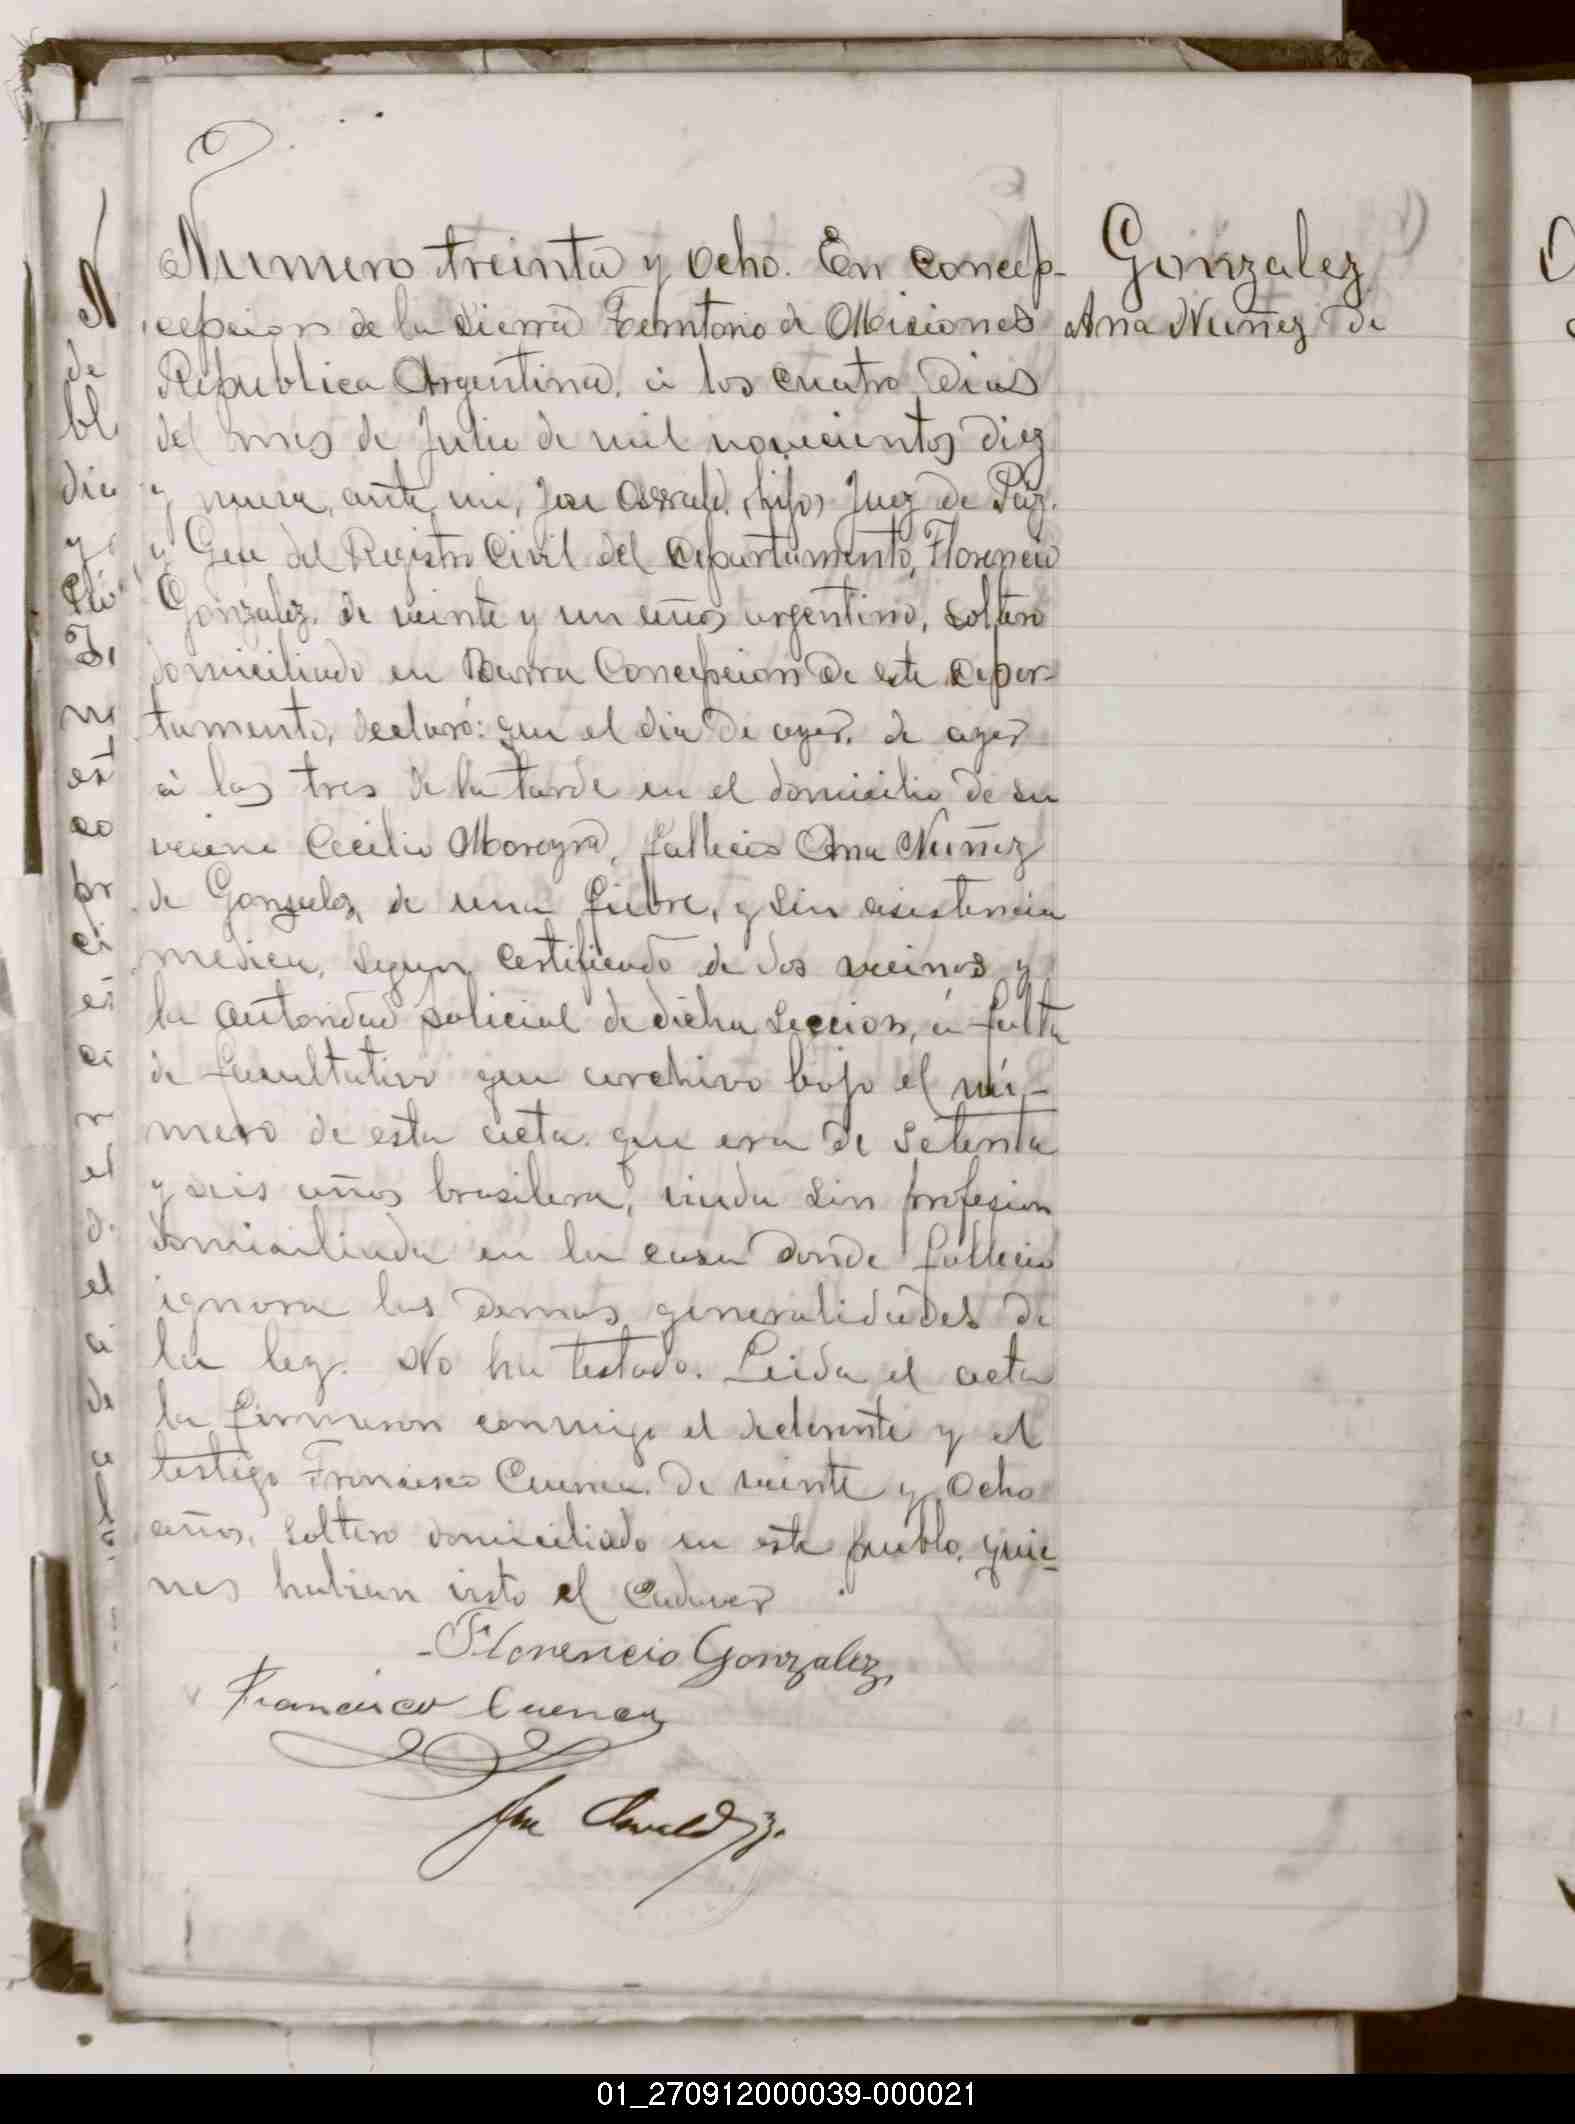 Numero treinta y ocho. En Concep-
cepcion de la Sierra Territorio de Misiones
Republica Argentina, á los cuatro dias
del mes de Julio de mil novecientos diez
y nueve, ante mi, José Osvald, (hijo) Juez de Páz.
y Gefe del Registro Civil del departamento, Florencio
Gonzalez, de veinte y un años argentino, soltero
domiciliado en Barra Concepcion de este depar-
tamento, declaró: que el dia de ayer, de ayer
á las tres de la tarde en el domicilio de su
vecino Cecilio Moreyra, fallecio Ana Nuñez
de Gonzalez, de una fiebre, y sin asistencia
medica, segun certificado de dos vecinos y
la autoridad policial de dicha seccion, á falta
de facultativo que archivo bajo el nú-
mero de esta acta. que era de setenta
y seis años brasilera, viuda sin profesion
domiciliada en la casa donde fallecio
ignora las demas generalidades de
la ley. No ha testado. Leida el acta
la firmaron conmigo el declarante y el
testigo Francisco Cuenca de veinte y ocho
años, soltero domiciliado en este pueblo, quie-
nes habian visto el cadaver
Florencio Gonzalez,
Francisco Cuenca
José Osvald
Gonzalez
Ana Nuñez de
N
de
bl
dia
y
est
co
pr
ci
es
el
el
á
de
01_270912000039-000021